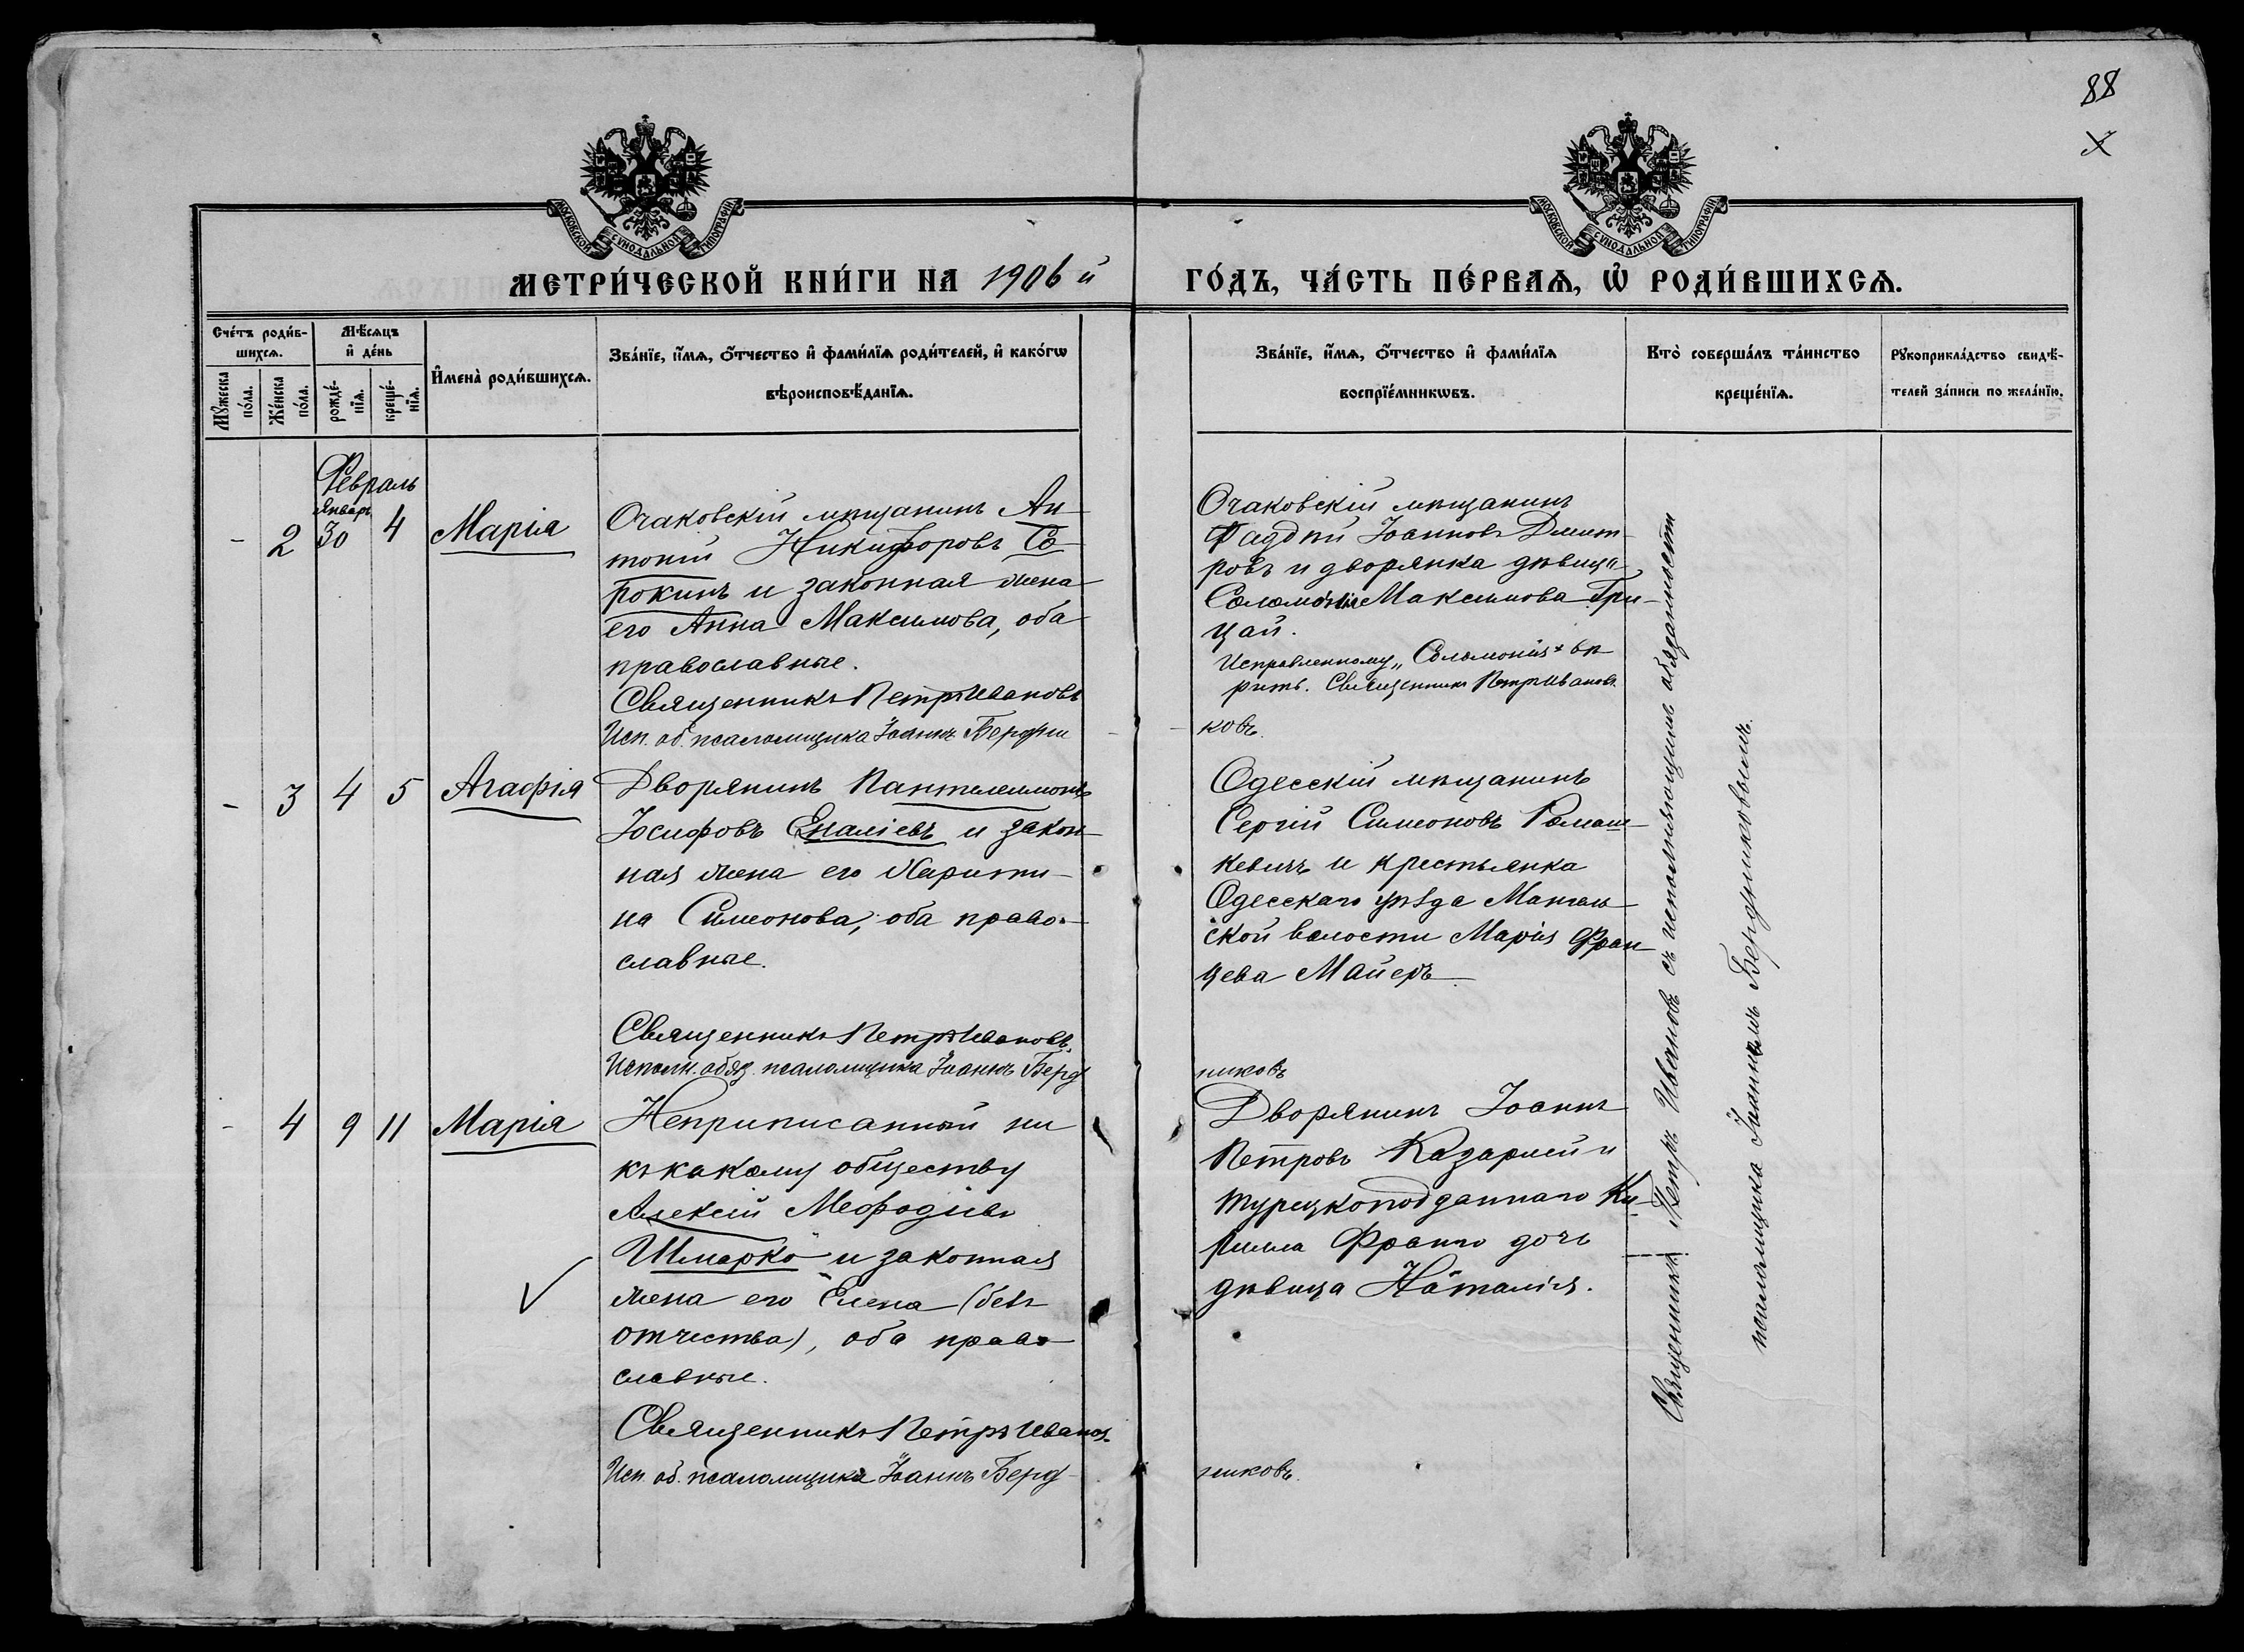 88
МОСКОВСКОЙ СѴНОДАЛЬНОЙ ТИПОГРАФІИ
МОСКОВСКОЙ СѴНОДАЛЬНОЙ ТИПОГРАФІИ
МЕТРИ́ЧЕСКОЙ КНИ́ГИ НА 1906 й
ГО́ДЪ, ЧА́СТЬ ПЕ́РВАѦ, Ѡ҆ РОДИ́ВШИХСѦ.
Сче́тъ роди́в-
шихсѧ.
Мꙋ́жеска по́ла.
Же́нска по́ла.
Мѣ́сѧцъ
и҆ де́нь
рожде́-
нїѧ.
креще́-
нїѧ.
И҆мена̀ роди́вшихсѧ.
Зва́нїе, и҆́мѧ, ѻ҆́тчество и҆ фами́лїѧ роди́телей, и҆ како́гѡ
вѣроисповѣ́данїѧ.
Зва́нїе, и҆́мѧ, ѻ҆́тчество и҆ фами́лїѧ
воспрїе́мникѡвъ.
Кто̀ соверша́лъ та́инство
креще́нїѧ.
Рꙋкоприкла́дство свидѣ́-
телей за́писи по жела́нїю.
Февраль
Январь
- 2 30 4 Марія
Очаковскій мѣщанинъ Ан-
тоній Никифоровъ Со-
рокинъ и законная жена
его Анна Максимова, оба
православные.
Священникъ Петръ Ивановъ
Исп. об. псаломщика Іоаннъ Бердни
Очаковскій мѣщанинъ
Фаддей Іоанновъ Дмит-
ровъ и дворянка дѣвица
Соломонія Максимова Гри-
цай.
Исправленному „Соломонія" вѣ-
рить. Священникъ Петръ Ивановъ
ковъ.
- 3 4 5 Агафія
Дворянинъ Пантелеимонъ
Іосифовъ Еналіевъ и закон-
ная жена его Харити-
на Симеонова, оба право-
славные.
Священникъ Петръ Ивановъ.
Исполн. обяз. псаломщика Іоаннъ Берд
Одесскій мѣщанинъ
Сергій Симеоновъ Ромаш-
кевичъ и крестьянка
Одесскаго уѣзда
ской волости Марія Фран-
цева Майеръ.
никовъ
- 4 9 11 Марія
Неприписанный ни
къ какому обществу
Алексій Меѳодіевъ
Шмарко и законная
жена его Елена (безъ
отчества), оба право-
славные.
Священникъ Петръ Ивановъ.
Исп. об. псаломщика Іоаннъ Берд-
Дворянинъ Іоаннъ
Петровъ и
турецкоподданнаго Ки-
рилла Франго дочь
дѣвица Наталія.
никовъ.
Священникъ Петръ Ивановъ съ исполняющимъ обязанности
псаломщика Іоанномъ Бердниковымъ.